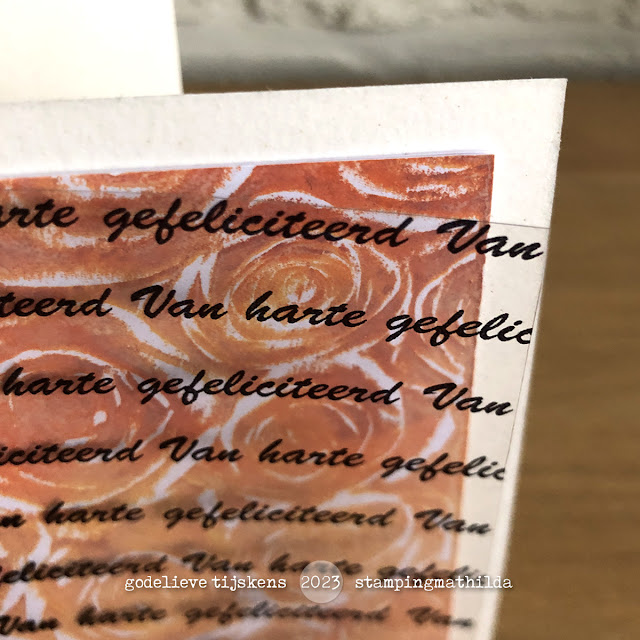 arte gefeliciteerd Van
teerd Van harte gefelic
harte gefeliciteerd Van
iciteerd Van harte gefelic
n harte gefeliciteerd Van
feliciteerd Van harte gefelic
Van harte gefeliciteerd Van
godelieve tijskens 2023 stampingmathilda